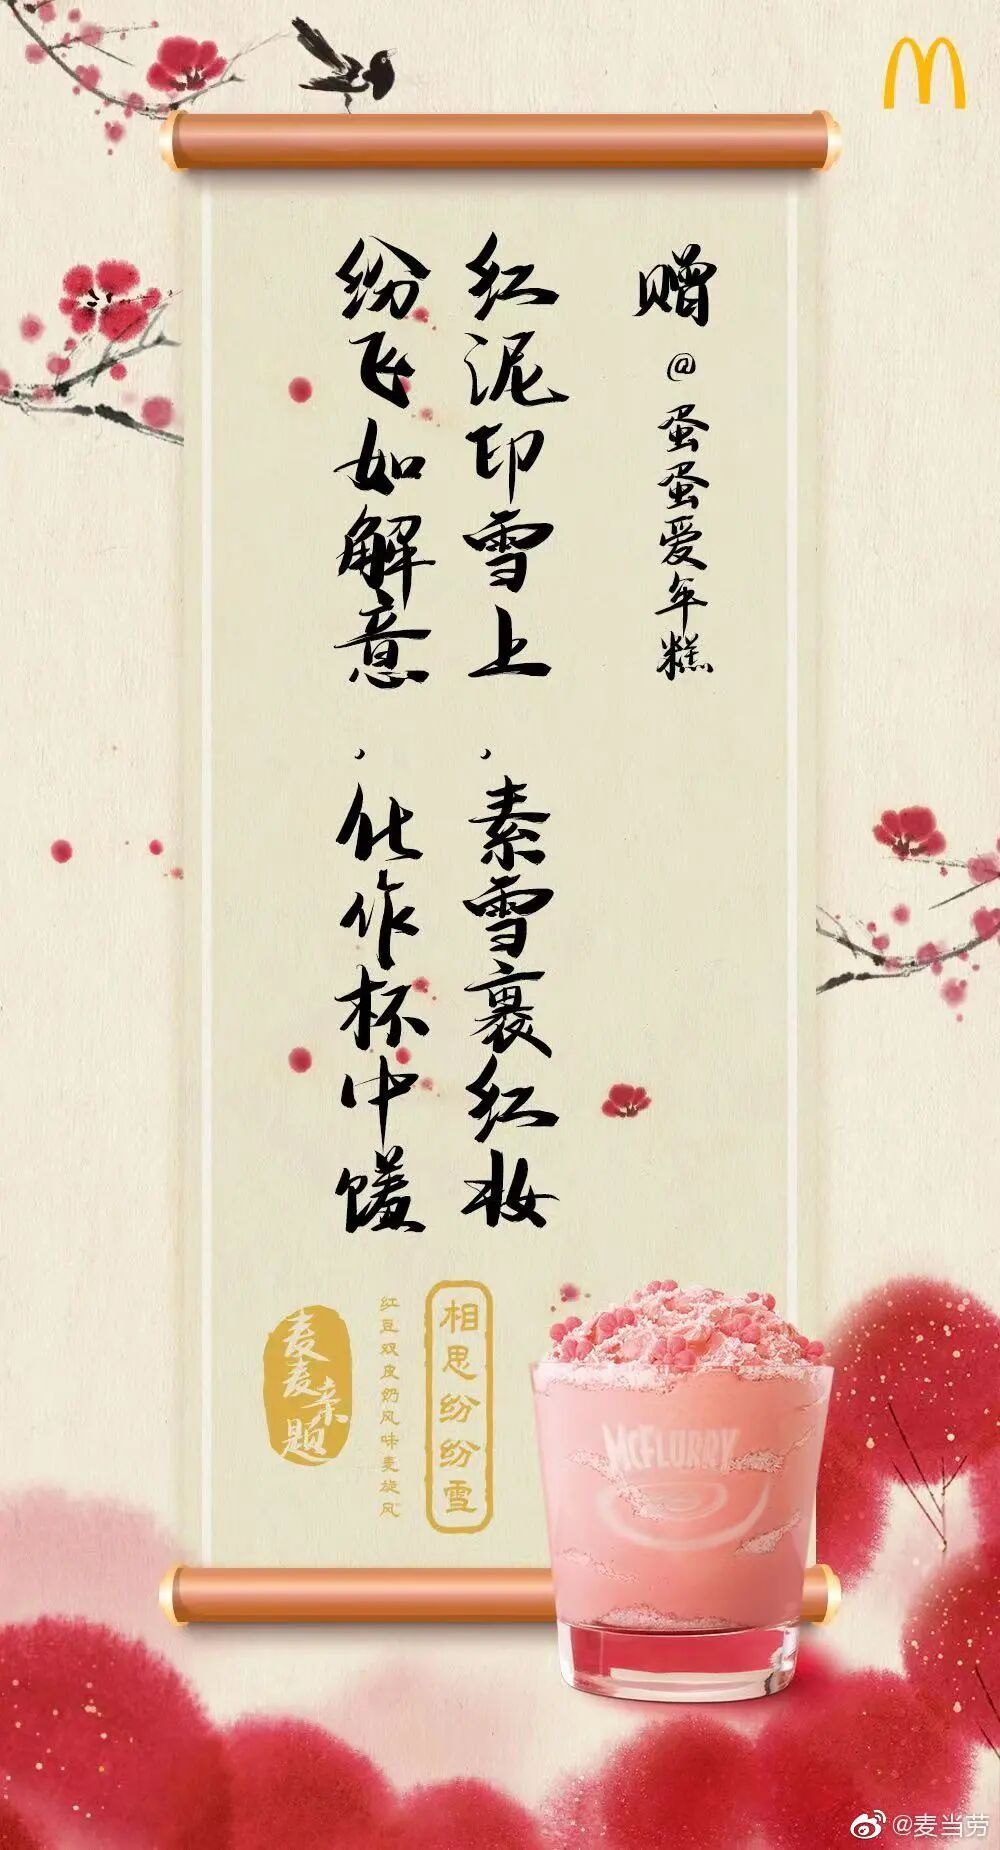 赠@蛋蛋爱年糕
红泥印雪上，素雪裹红妆
纷飞如解意，化作杯中馐
相思纷纷雪
红豆双皮奶风味麦旋风
麦麦亲题
McFLURRY
@麦当劳